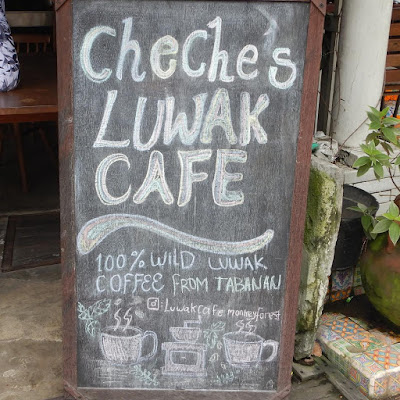 CheChe's
LUWAK
CAFE
100% WILD LUWAK
COFFEE FROM TABANAN
:Luwakcafe monkeyforest